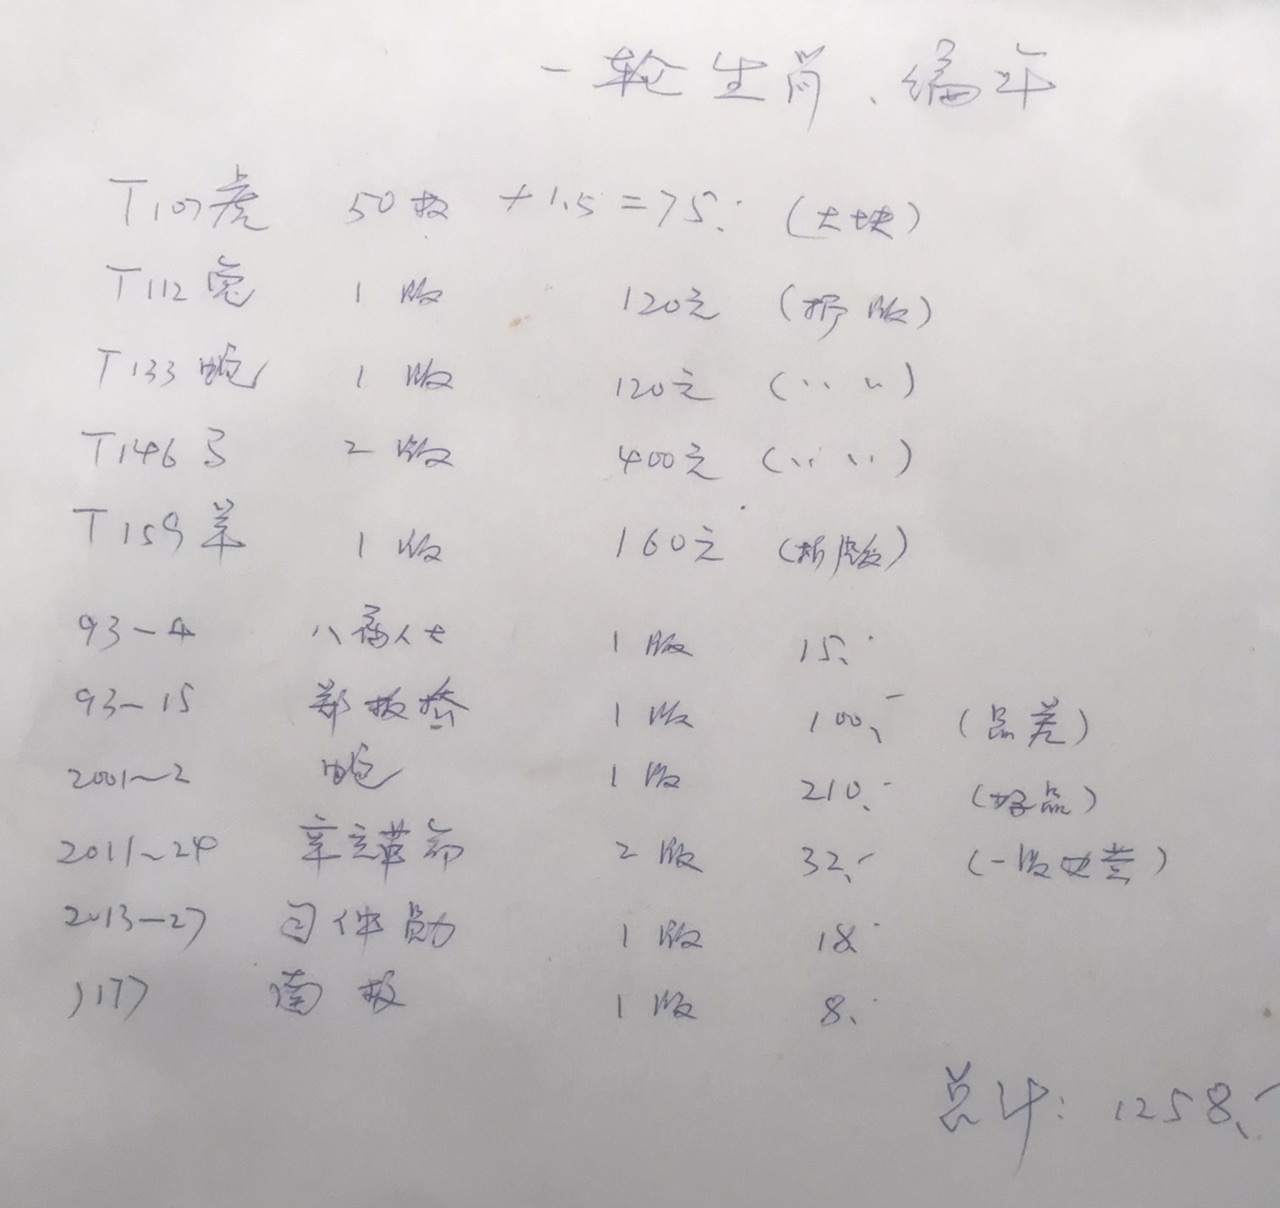 一轮生肖、编年
T107虎 50枚 +1.5=75.- (大块)
T112兔 1版 120元 (拆版)
T133蛇 1版 120元 (〃 〃)
T146马 2版 400元 (〃 〃)
T159羊 1版 160元 (拆版)
93-4 八 1版 15.-
93-15 郑板桥 1版 100.- (品差)
2001-2 蛇 1版 210.- (好品)
2011-24 辛亥革命 2版 32.- (一版)
2013-27 习仲勋 1版 18.-
J177 南极 1版 8.-
总计: 1258.-